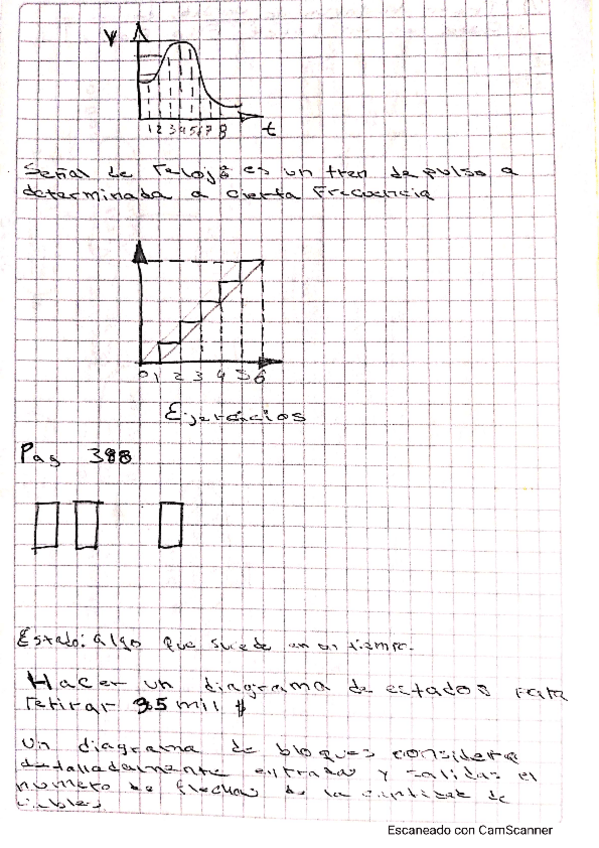 V
1 2 3 4 5 6 7 8 t
Señal de reloj: es un tren de pulso a
determinada a cierta Frecuencia
0 1 2 3 4 5 6
Ejercicios
Pag 388
Estado: algo que sucede en un tiempo.
Hacer un diagrama de estados para
retirar 35 mil $
Un diagrama de bloques considera
detalladamente entradas y salidas el
numero de flechas de la cantidad de
cables
Escaneado con CamScanner